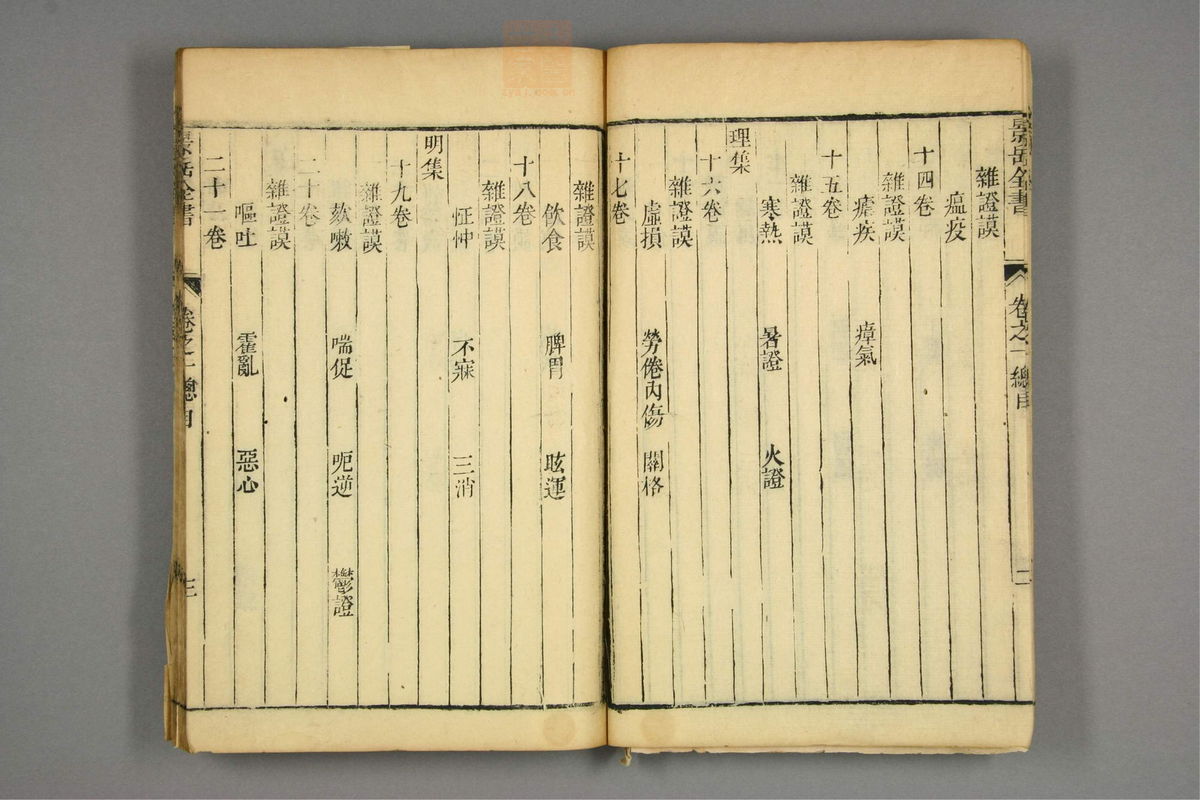 景岳全書 卷之一總目 二
雜證謨
瘟疫
十四卷
雜證謨
瘧疾 瘴氣
十五卷
雜證謨
寒熱 暑證 火證
理集
十六卷
雜證謨
虛損 勞倦內傷 關格
十七卷
雜證謨
飲食 脾胃 眩運
十八卷
雜證謨
怔忡 不寐 三消
明集
十九卷
雜證謨
欬嗽 喘促 呃逆 鬱證
二十卷
雜證謨
嘔吐 霍亂 惡心
二十一卷
景岳全書 卷之一總目 三
zysj.com.cn